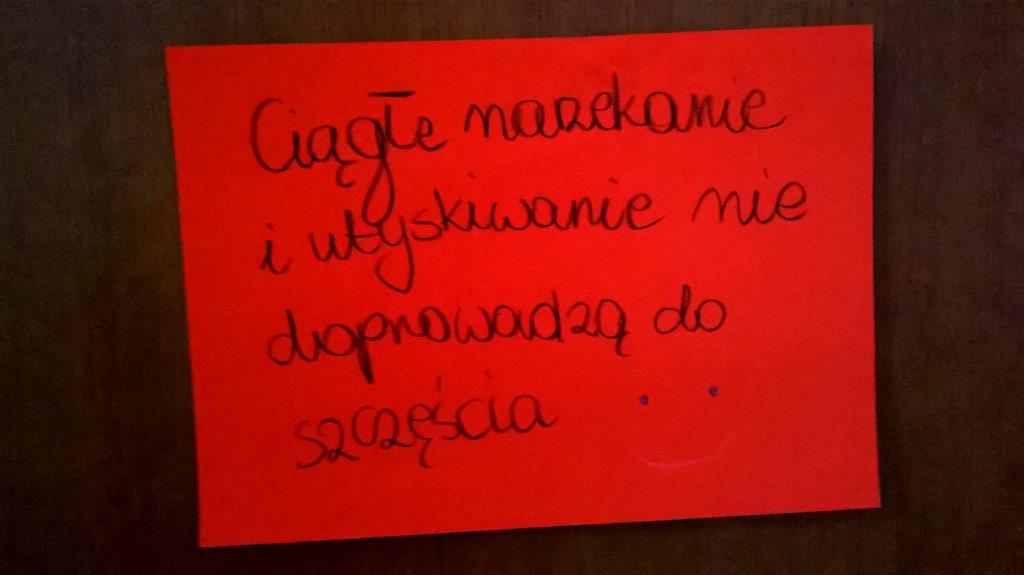 Ciągłe narzekanie
i utyskiwanie nie
doprowadzą do
szczęścia